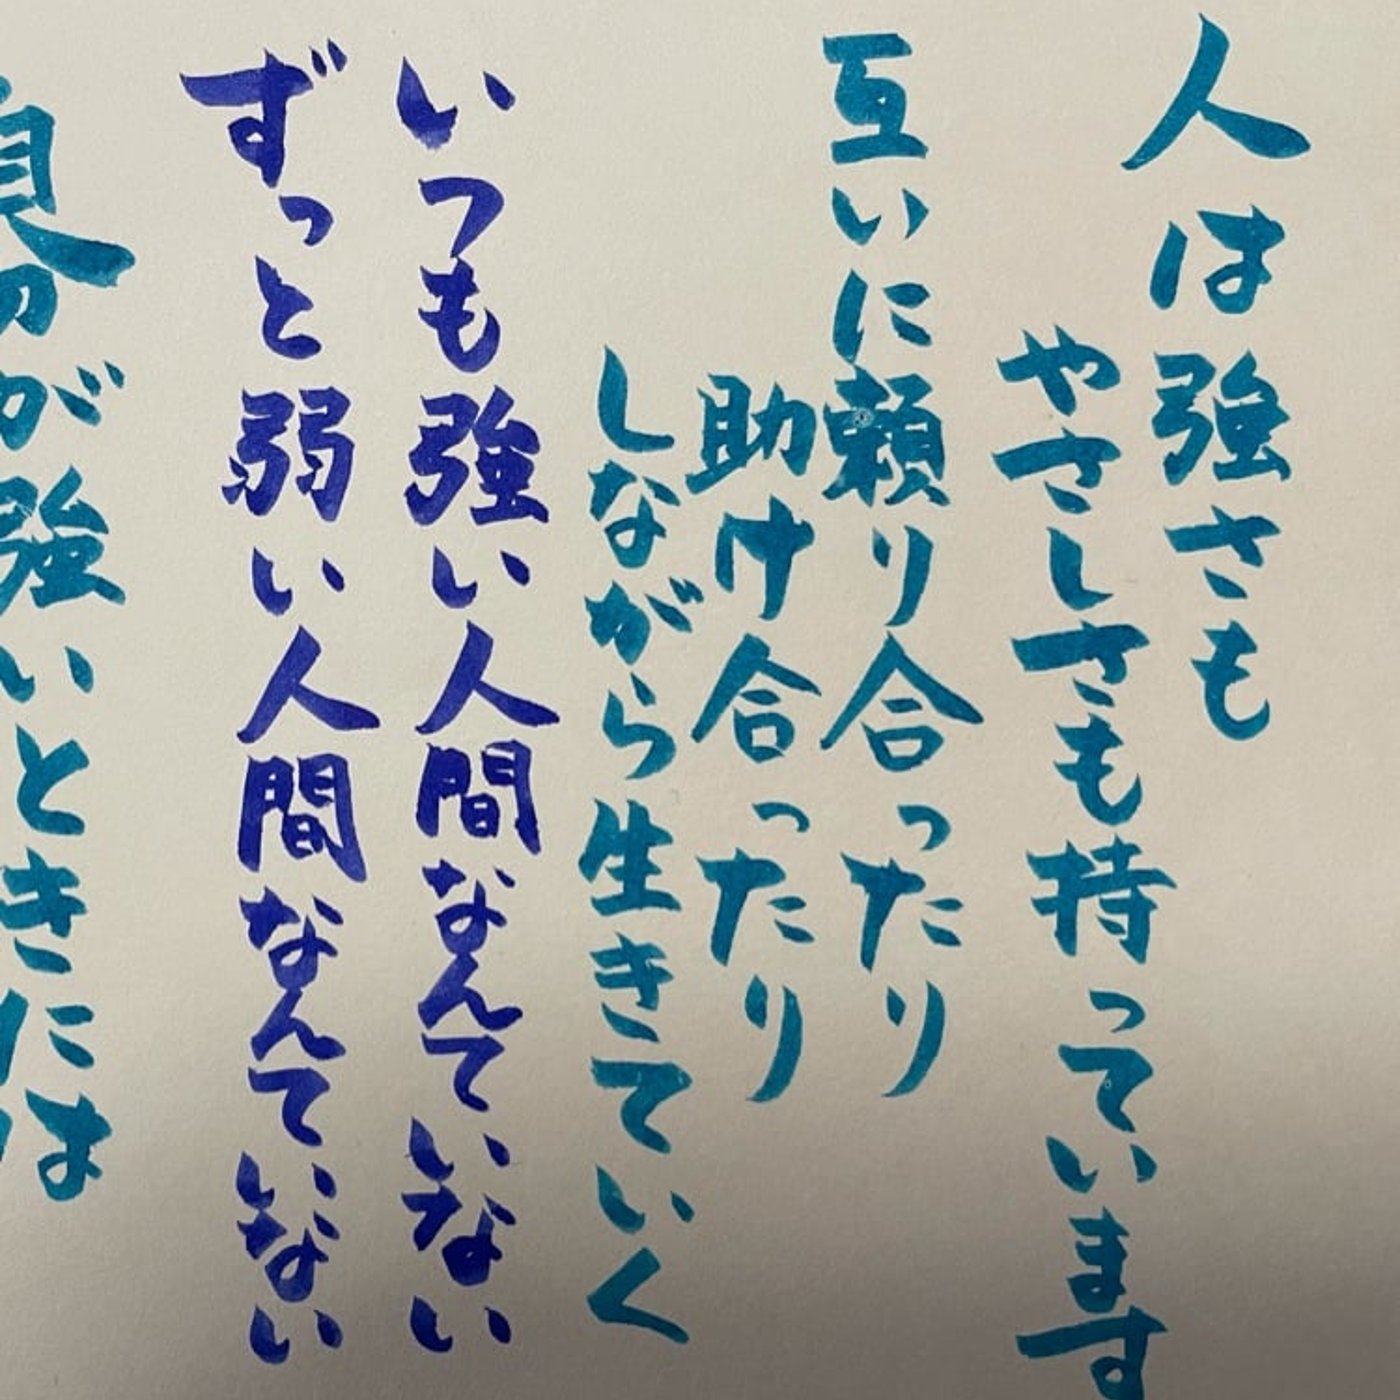 人は強さも
やさしさも持っています
互いに頼り合ったり
助け合ったり
しながら生きていく
いつも強い人間なんていない
ずっと弱い人間なんていない
自分が強いときには